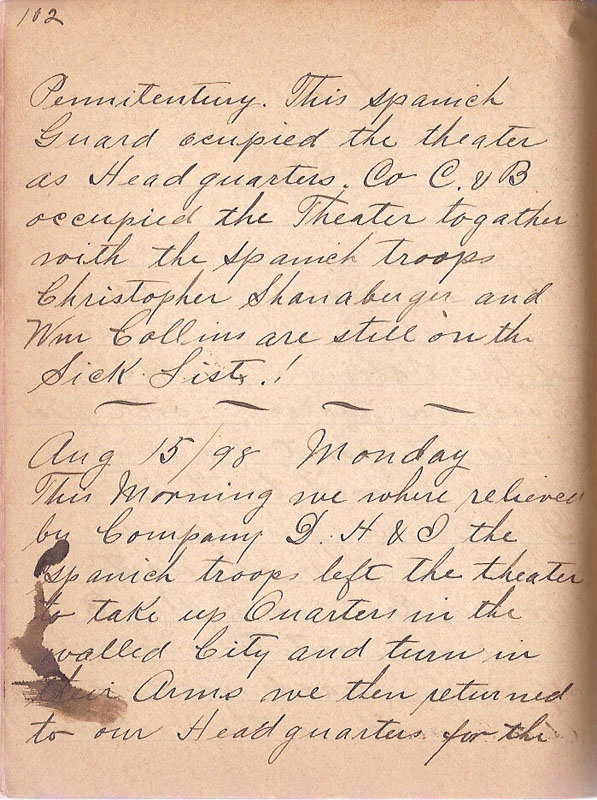 102
Pennitentury. This spanich
Guard ocupied the theater
as Head quarters. Co C. & B
occupied the Theater togather
with the spanich troops
Christopher Shanaberger and
Wm Collins are still on the
Sick List.!
Aug 15/98 Monday
This Morning we where relieved
by Company D. H & I the
spanich troops left the theater
to take up Quarters in the
walled City and turn in
their Arms we then returned
to our Head quarters for the